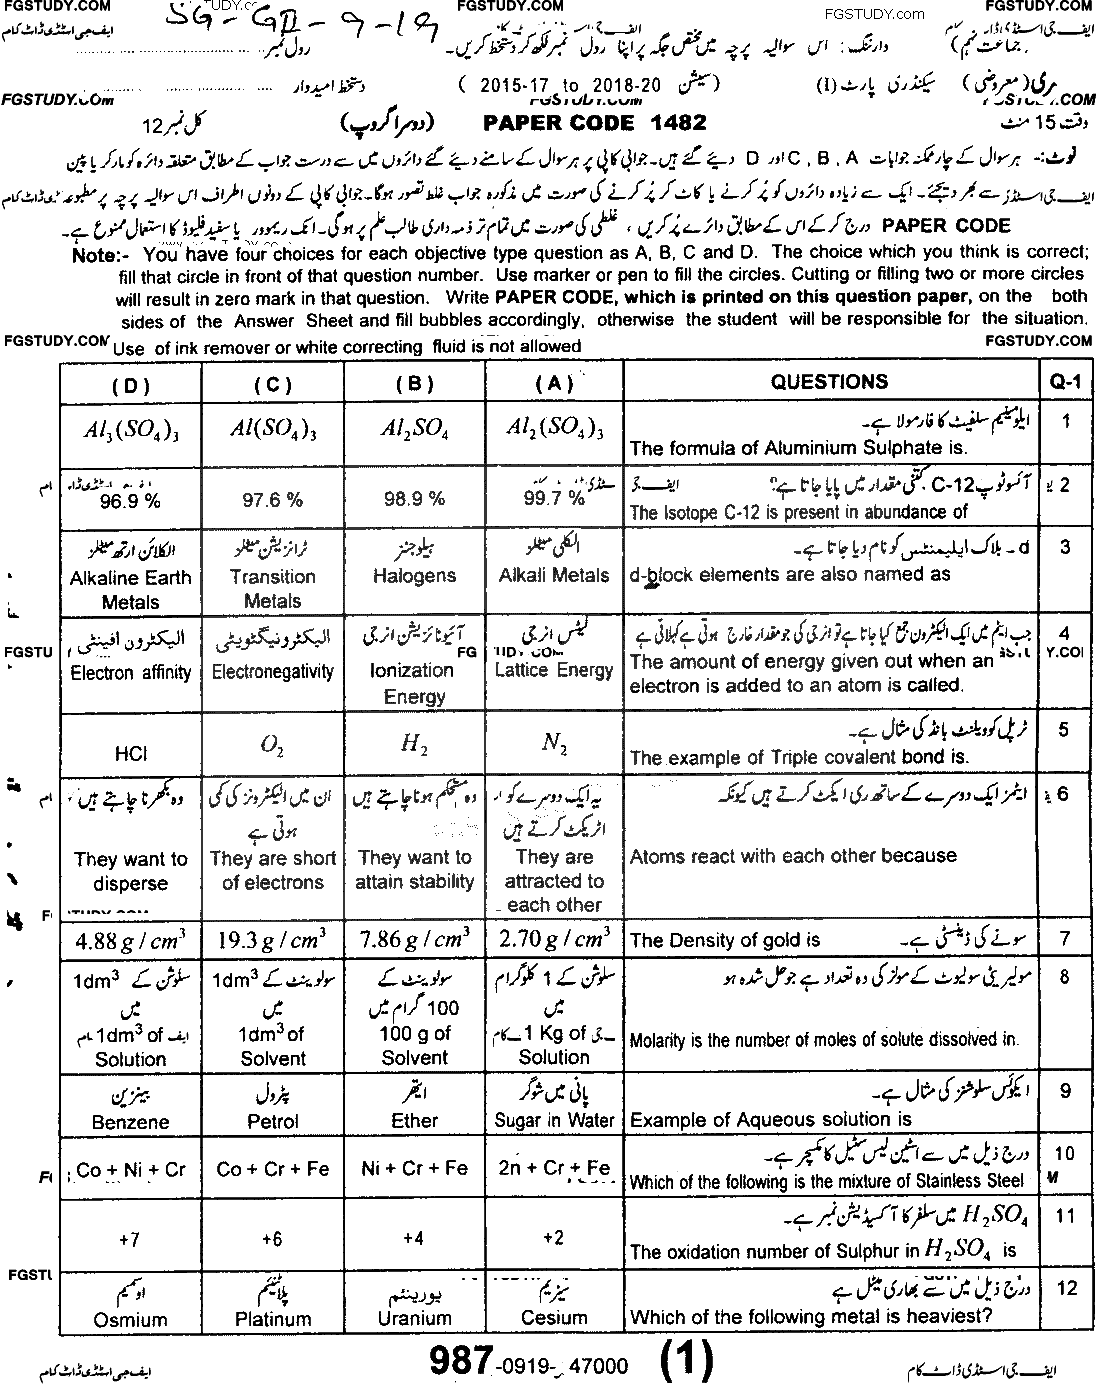 FGSTUDY.COM FGSTUDY.COM FGSTUDY.com ایف جی اسٹڈی ڈاٹ کام
SG-GII-9-19
ایف جی اسٹڈی ڈاٹ کام رول نمبر وارننگ: اس سوالیہ پرچہ میں مختص جگہ پر اپنا رول نمبر لکھ کر دستخط کریں۔ (جماعت نہم)
دستخط امیدوار ( 2015-17 to 2018-20 سیشن ) سیکنڈری پارٹ (I) (معروضی)
FGSTUDY.COm FGSTUDY.COM
کل نمبر 12 (دوسرا گروپ) PAPER CODE 1482 وقت 15 منٹ
نوٹ:- ہر سوال کے چار ممکنہ جوابات A ، B ، C اور D دیئے گئے ہیں۔ جوابی کاپی پر ہر سوال کے سامنے دیئے گئے دائروں میں سے درست جواب کے مطابق متعلقہ دائرہ کو مارکر یا پین
سے بھر دیجئے۔ ایک سے زیادہ دائروں کو پُر کرنے یا کاٹ کر پُر کرنے کی صورت میں مذکورہ جواب غلط تصور ہوگا۔ جوابی کاپی کے دونوں اطراف اس سوالیہ پرچہ پر مطبوعہ
PAPER CODE درج کر کے اس کے مطابق دائرے پُر کریں ، غلطی کی صورت میں تمام تر ذمہ داری طالب علم پر ہوگی۔ انک ریموور یا سفید فلیوڈ کا استعمال ممنوع ہے۔
Note:- You have four choices for each objective type question as A, B, C and D. The choice which you think is correct;
fill that circle in front of that question number. Use marker or pen to fill the circles. Cutting or filling two or more circles
will result in zero mark in that question. Write PAPER CODE, which is printed on this question paper, on the both
sides of the Answer Sheet and fill bubbles accordingly, otherwise the student will be responsible for the situation.
FGSTUDY.COM Use of ink remover or white correcting fluid is not allowed FGSTUDY.COM
(D) (C) (B) (A) QUESTIONS Q-1
ایلومینیم سلفیٹ کا فارمولا ہے۔ 1
Al₃(SO₄)₃ Al(SO₄)₃ Al₂SO₄ Al₂(SO₄)₃ The formula of Aluminium Sulphate is.
آئسوٹوپ C-12 کتنی مقدار میں پایا جاتا ہے؟ 2
96.9 % 97.6 % 98.9 % 99.7 % The Isotope C-12 is present in abundance of
الکلائن ارتھ میٹلز ٹرانزیشن میٹلز ہیلوجنز الکلی میٹلز d - بلاک ایلیمنٹس کو نام دیا جاتا ہے۔ 3
Alkaline Earth Metals Transition Metals Halogens Alkali Metals d-block elements are also named as
الیکٹرون افینٹی الیکٹرونیگٹویٹی آئیونائزیشن انرجی لیٹس انرجی جب ایٹم میں ایک الیکٹرون جمع کیا جاتا ہے تو انرجی کی جو مقدار خارج ہوتی ہے کہلاتی ہے 4
Electron affinity Electronegativity Ionization Energy Lattice Energy The amount of energy given out when an
electron is added to an atom is called.
ٹرپل کوویلنٹ بانڈ کی مثال ہے۔ 5
HCl O₂ H₂ N₂ The example of Triple covalent bond is.
وہ بکھرنا چاہتے ہیں ان میں الیکٹرونز کی کمی ہوتی ہے وہ مستحکم ہونا چاہتے ہیں یہ ایک دوسرے کو اٹریکٹ کرتے ہیں ایٹمز ایک دوسرے کے ساتھ ری ایکٹ کرتے ہیں کیونکہ 6
They want to disperse They are short of electrons They want to attain stability They are attracted to each other Atoms react with each other because
4.88 g / cm³ 19.3 g / cm³ 7.86 g / cm³ 2.70 g / cm³ The Density of gold is سونے کی ڈینسٹی ہے۔ 7
سلوشن کے 1dm³ میں سولوینٹ کے 1dm³ میں سولوینٹ کے 100 گرام میں سلوشن کے 1 کلوگرام میں مولیریٹی سولیوٹ کے مولز کی وہ تعداد ہے جو حل شدہ ہو 8
1dm³ of Solution 1dm³ of Solvent 100 g of Solvent 1 Kg of Solution Molarity is the number of moles of solute dissolved in.
بینزین پٹرول ایتھر پانی میں شوگر ایکوئس سلوشنز کی مثال ہے۔ 9
Benzene Petrol Ether Sugar in Water Example of Aqueous solution is
درج ذیل میں سے اسٹین لیس سٹیل کا مکسچر ہے۔ 10
Co + Ni + Cr Co + Cr + Fe Ni + Cr + Fe 2n + Cr + Fe Which of the following is the mixture of Stainless Steel
H₂SO₄ میں سلفر کا آکسیڈیشن نمبر ہے۔ 11
+7 +6 +4 +2 The oxidation number of Sulphur in H₂SO₄ is
اوسمیم پلاٹینم یورینیم سیزیم درج ذیل میں سے بھاری میٹل ہے 12
Osmium Platinum Uranium Cesium Which of the following metal is heaviest?
ایف جی اسٹڈی ڈاٹ کام 987-0919-47000 (1) ایف جی اسٹڈی ڈاٹ کام